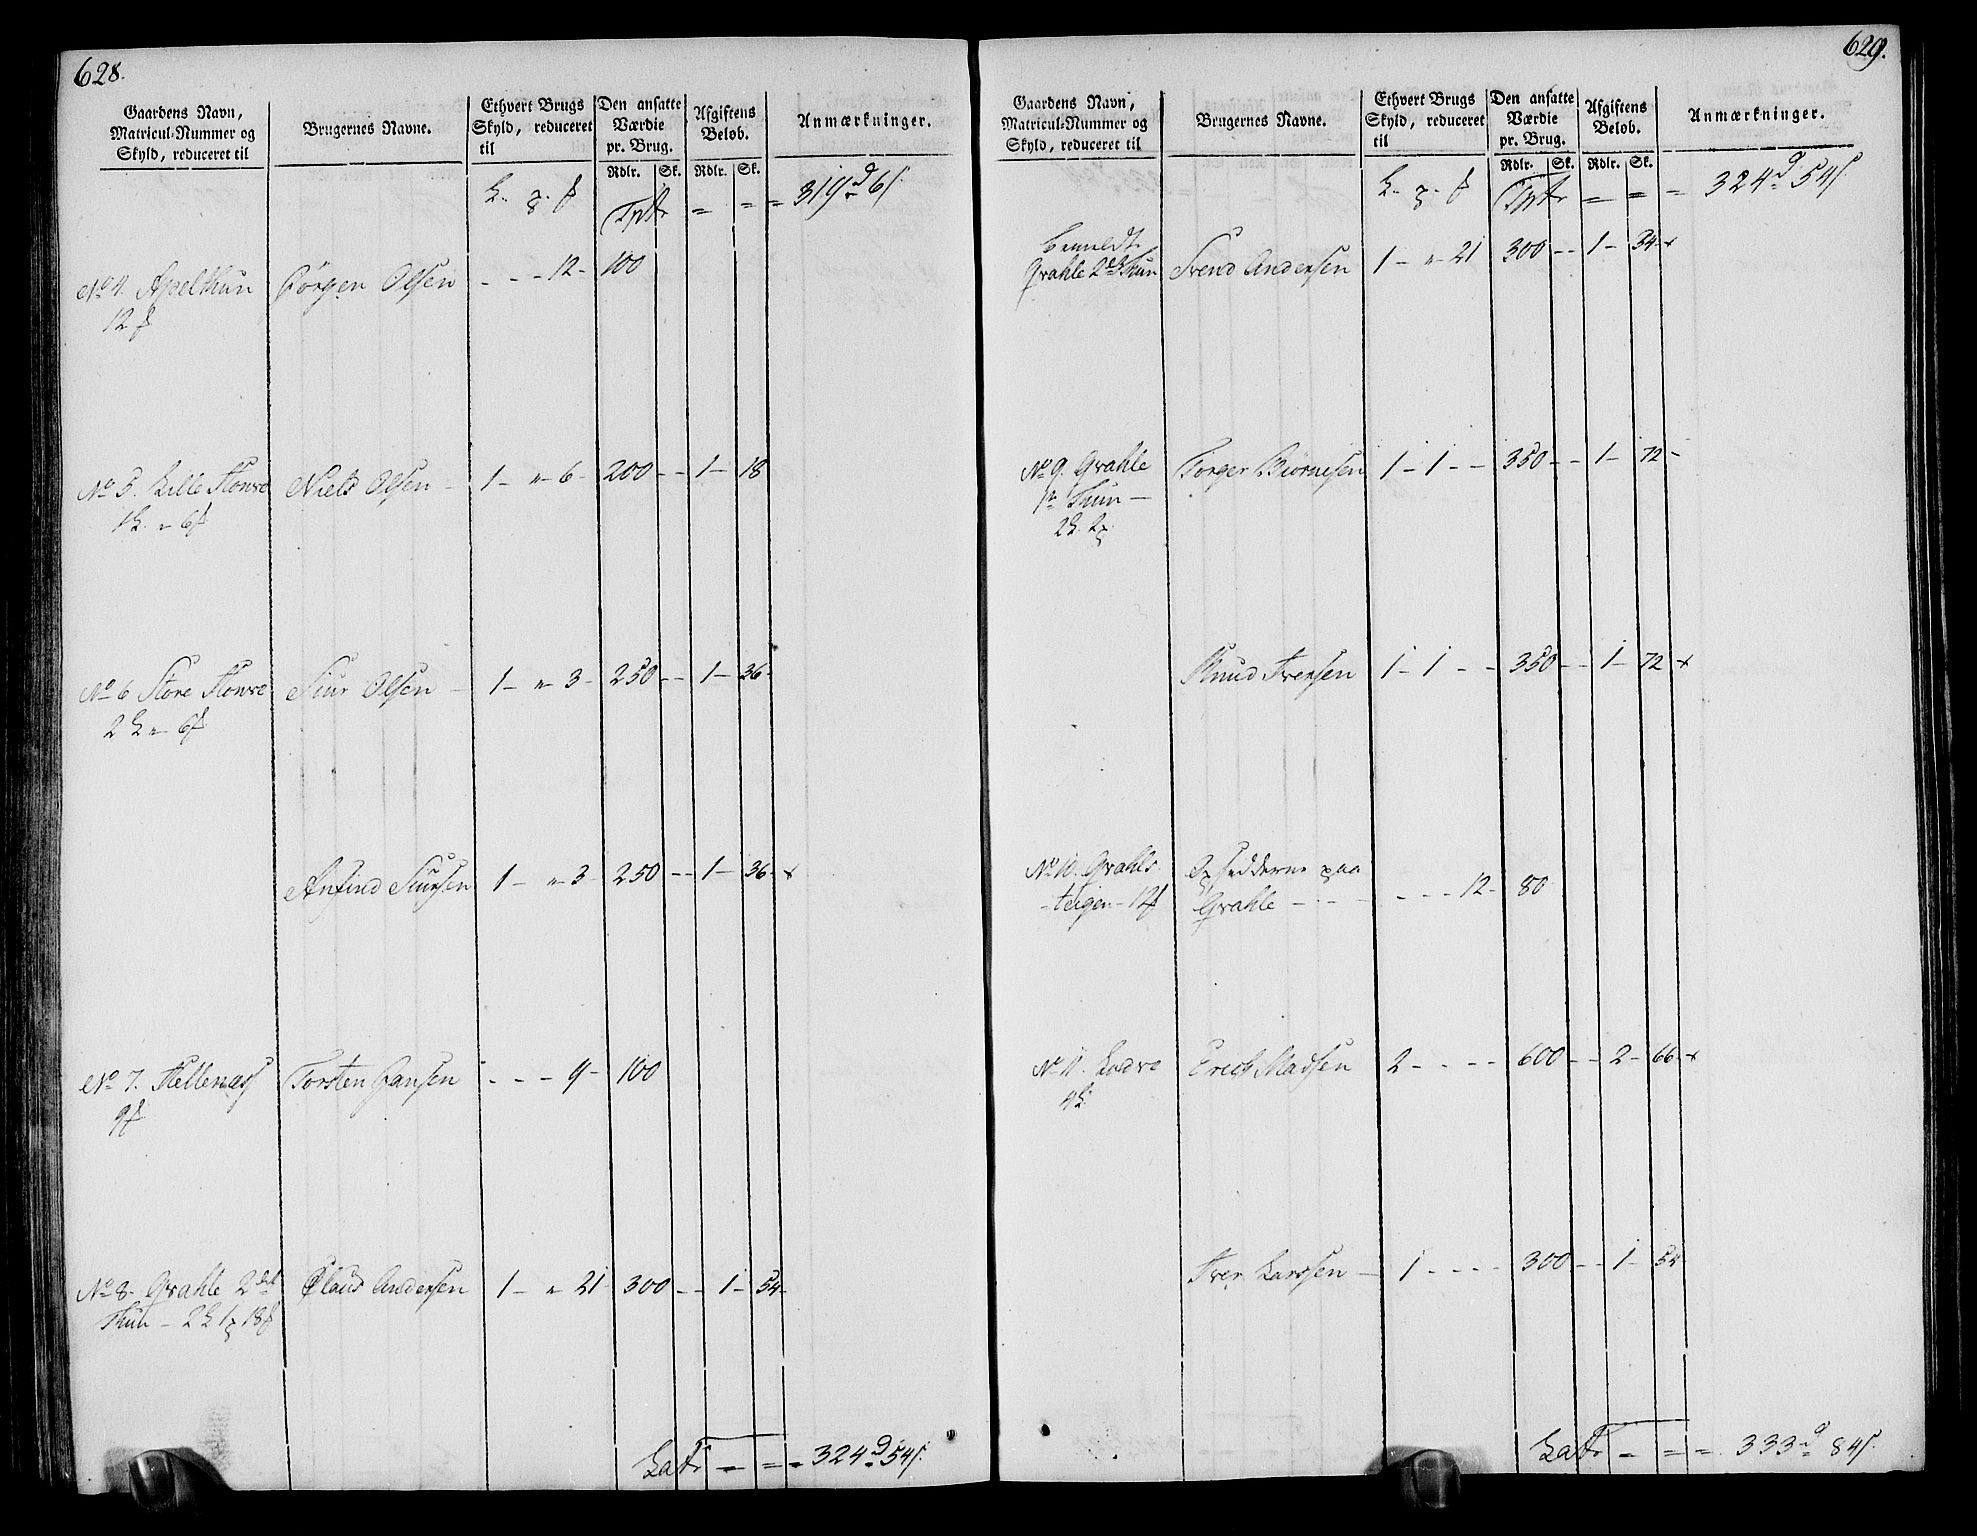 628.
Gaardens Navn,
Matricul-Nummer og
Skyld, reduceret til
Brugernes Navne.
Ethvert Brugs
Skyld, reduceret
til
Den ansatte
Værdie
pr. Brug.
Rdlr. Sk.
Afgiftens
Beløb.
Rdlr. Sk.
Anmærkninger.
Tptr = = = 319 d 6 s.
No 4. Apelthun Jørgen Olsen - - - 12 - 100
12
No 5. Lille Houre Niels Olsen - 1 - " 6 - 200 - - 1 - 18
1 L. " 6
No 6 Store Houre Siur Olsen - 1 - " 3 - 250 - - 1 - 36 -
2 L " 6
Anfind Siursen 1 - " 3 - 250 - - 1 - 36 - x
No 7. Hellenæs Torsten Hansen - - - 9 - 100
9
No 8. Grahle 2det Claus Andersen 1 - " 21 - 300 - - 1 - 54 -
Thun - 2 L 1 18
Latr = = = 324 d 54 s.
629.
Gaardens Navn,
Matricul-Nummer og
Skyld, reduceret til
Brugernes Navne.
Ethvert Brugs
Skyld, reduceret
til
Den ansatte
Værdie
pr. Brug.
Rdlr. Sk.
Afgiftens
Beløb.
Rdlr. Sk.
Anmærkninger.
Tptr = = = 324 d 54 s
Bemeldt
Grahle 2det Thun Svend Andersen 1 - " 21 300 - - 1 - 54 - x
No 9. Grahle Torger Biørnesen 1 - 1 - - 350 - - 1 - 72 -
1te Thun -
2 L. 2
Knud Iversen 1 - 1 - - 350 - - 1 - 72 - x
No 10. Grahls Opsidderne paa
- teigen - 12 Grahle - - - - - - 12 - 80
No 11. Erich Madsen 2 - - - - 600 - - 2 - 66 - x
4 L.
Iver Larssen - 1 - - - - 300 - - 1 - 54
Latr = = = 333 d 84 s.